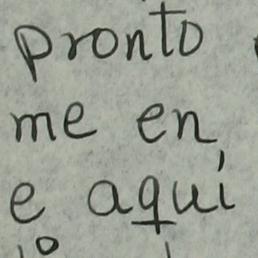 pronto
me en
e aquí